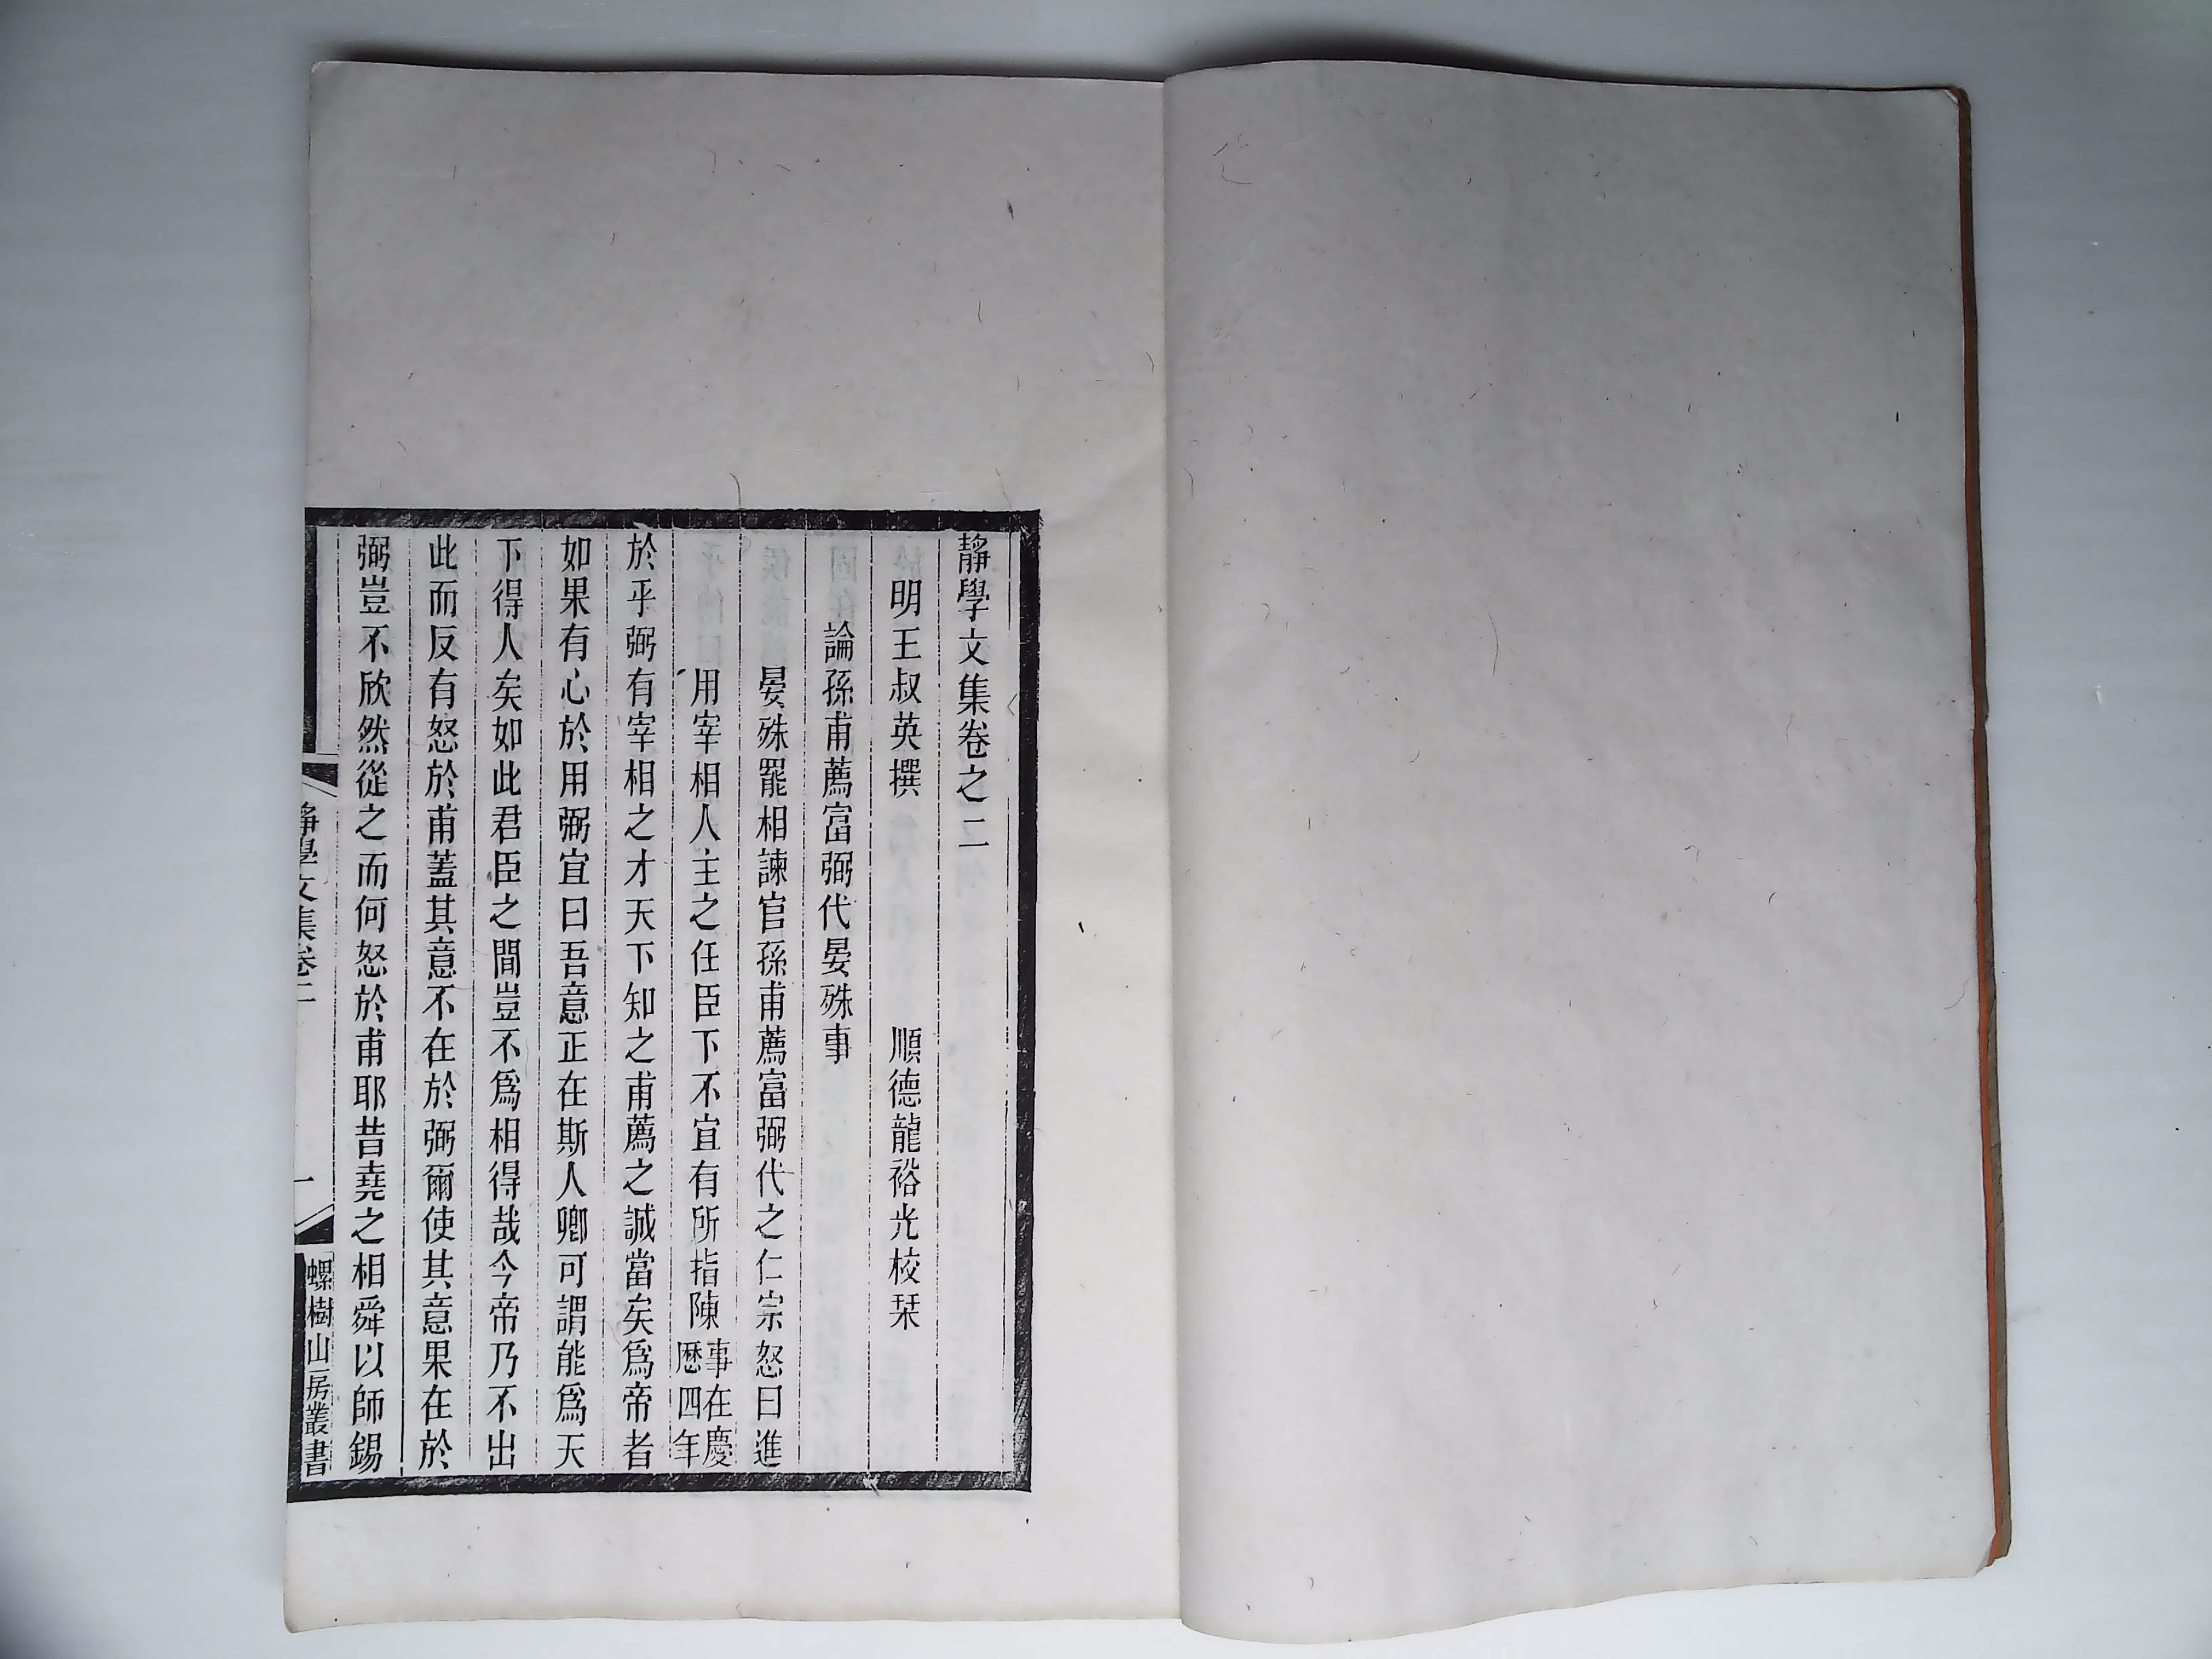 靜學文集卷之二
明王叔英撰　順德龍裕光校栞
論孫甫薦富弼代晏殊事
晏殊罷相諫官孫甫薦富弼代之仁宗怒曰進
用宰相人主之任臣下不宜有所指陳事在慶曆四年
於乎弼有宰相之才天下知之甫薦之誠當矣爲帝者
如果有心於用弼宜曰吾意正在斯人卿可謂能爲天
下得人矣如此君臣之間豈不爲相得哉今帝乃不出
此而反有怒於甫蓋其意不在於弼爾使其意果在於
弼豈不欣然從之而何怒於甫耶昔堯之相舜以師錫
靜學文集卷二
一
螺樹山房叢書